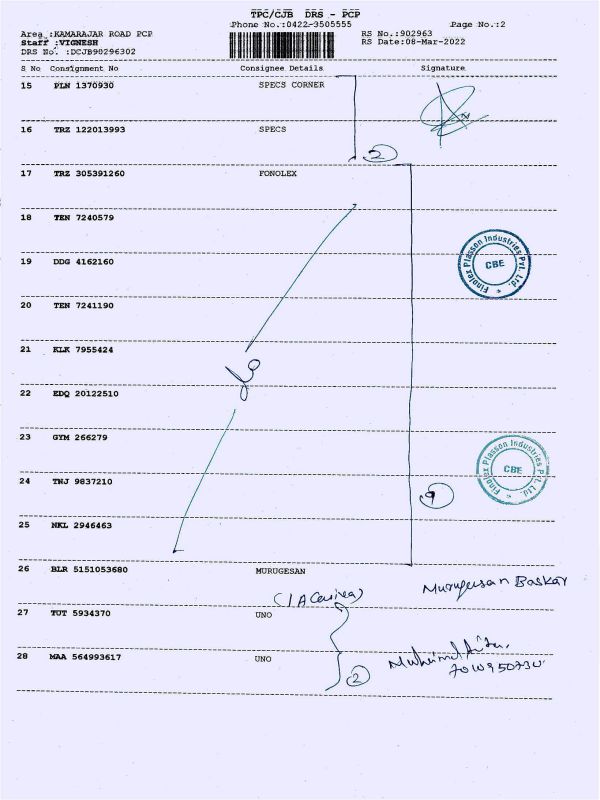 TPC/CJB DRS - PCP
Phone No.:0422-3505555 Page No.:2
Area :KAMARAJAR ROAD PCP RS No.:902963
Staff :VIGNESH RS Date:08-Mar-2022
DRS No. :DCJB90296302
S No Consignment No Consignee Details Signature
15 PLN 1370930 SPECS CORNER
16 TRZ 122013993 SPECS
2
17 TRZ 305391260 FONOLEX
18 TEN 7240579
19 DDG 4162160
Finolex Plasson Industries Pvt. Ltd. CBE
20 TEN 7241190
21 KLK 7955424
22 EDQ 20122510
23 GYM 266279
Finolex Plasson Industries Pvt. Ltd. CBE
24 TNJ 9837210
9
25 NKL 2946463
26 BLR 5151053680 MURUGESAN
Murugesan Baskar
27 TUT 5934370 UNO
28 MAA 564993617 UNO
2